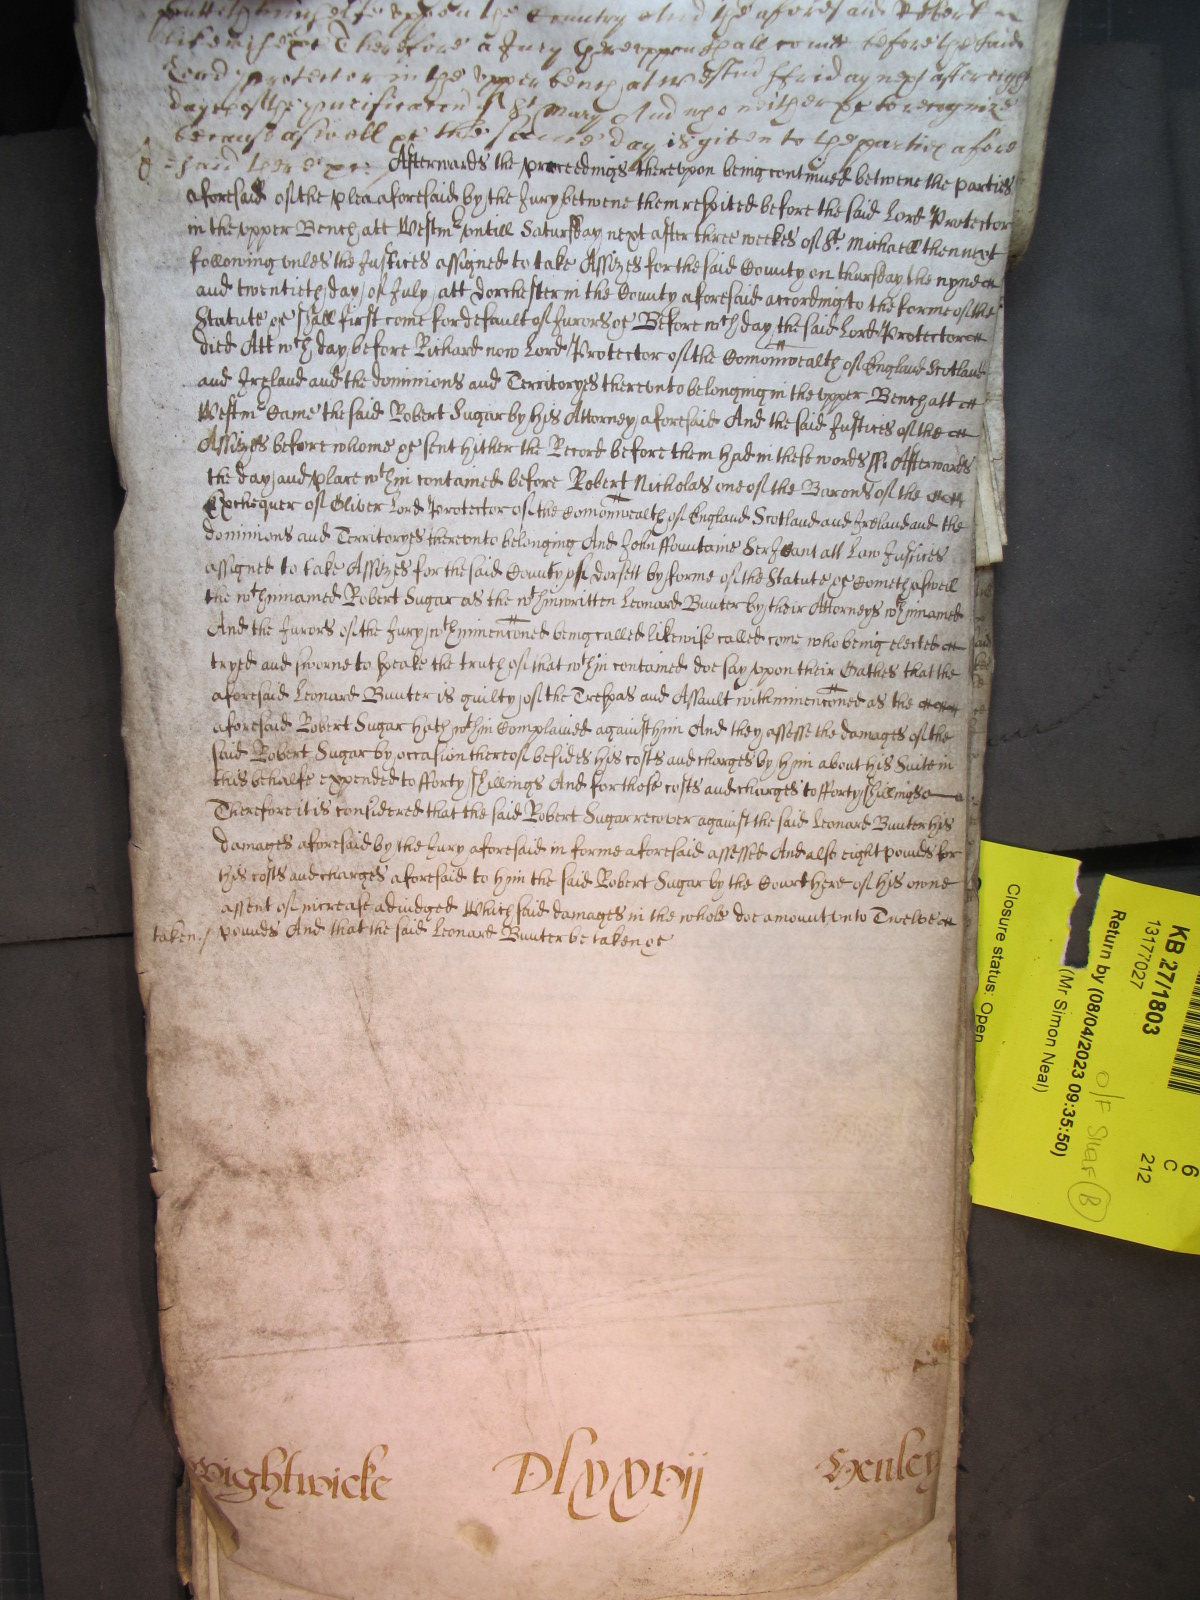 putteth himselfe vppon the Country And the aforesaid Robert
likewise &c Therefore a Jury therevppon shall come before the said
Lord Protector in the vpper bench att Westm on ffriday next after eight
dayes of the purificacon of St Mary And who neither &c to recognize
because aswell &c the same day is giuen to the parties afore
=said there &c Afterwards the proceedings therevpon being continued betwene the parties
aforesaid of the plea aforesaid by the Jury betwene them respited before the said Lord Protector
in the vpper Bench att Westmr vntill Saturday next after three weekes of St. Michaell then next
following vnles the Justices assigned to take Assizes for the said County on thursday the nyne
and twentieth day of July att Dorchester in the County aforesaid according to the forme of the
Statute &c shall first come for default of Jurors &c Before wch day the said Lord Protector
died Att wch day before Richard now Lord Protector of the Comonwealth of England Scotland
and Ireland and the dominions and Territoryes therevnto belonging in the vpper Bench att
Westmr Came the said Robert Sugar by his Attorney aforesaid And the said Justices of the
Assizes before whome &c sent hither the Record before them had in these words ss. Afterwards
the day and place wthin contained before Robert Nicholas one of the Barons of the
Exchequer of Oliver Lord Protector of the Comonwealth of England Scotland and Ireland and the
dominions and Territoryes therevnto belonging And John ffountaine Serjeant att Law Justices
assigned to take Assizes for the said County of Dorsett by forme of the Statute &c Cometh aswell
the wthinnamed Robert Sugar as the wthinwritten Leonard Bunter by their Attorneys wthinnamed
And the Jurors of the Jury wthinmenconed being called likewise called come who being elected
tryed and sworne to speake the truth of that wthin contained doe say vpon their Oathes that the
aforesaid Leonard Bunter is guilty of the Trespas and Assault withinmenconed as the
aforesaid Robert Sugar hath wthin Complained against him And they assesse the damages of the
said Robert Sugar by occasion thereof besides his costs and charges by him about his Suite in
this behalfe expended to fforty shillings And for those costs and charges to fforty shillings
Therefore it is considered that the said Robert Sugar recover against the said Leonard Bunter his
damages aforesaid by the Jury aforesaid in forme aforesaid assessed And alsoe eight pounds for
his costs and charges aforesaid to him the said Robert Sugar by the Court here of his owne
assent of increase adiudged Which said damages in the whole doe amount vnto Twelve
taken./ pounds And that the said Leonard Bunter be taken &c
Wightwicke Dlxxvij Henley
KB 27/1803
13177027
Return by (08/04/2023 09:35:50)
(Mr Simon Neal)
Closure status: Open
O/F Shelf B
6
C
212